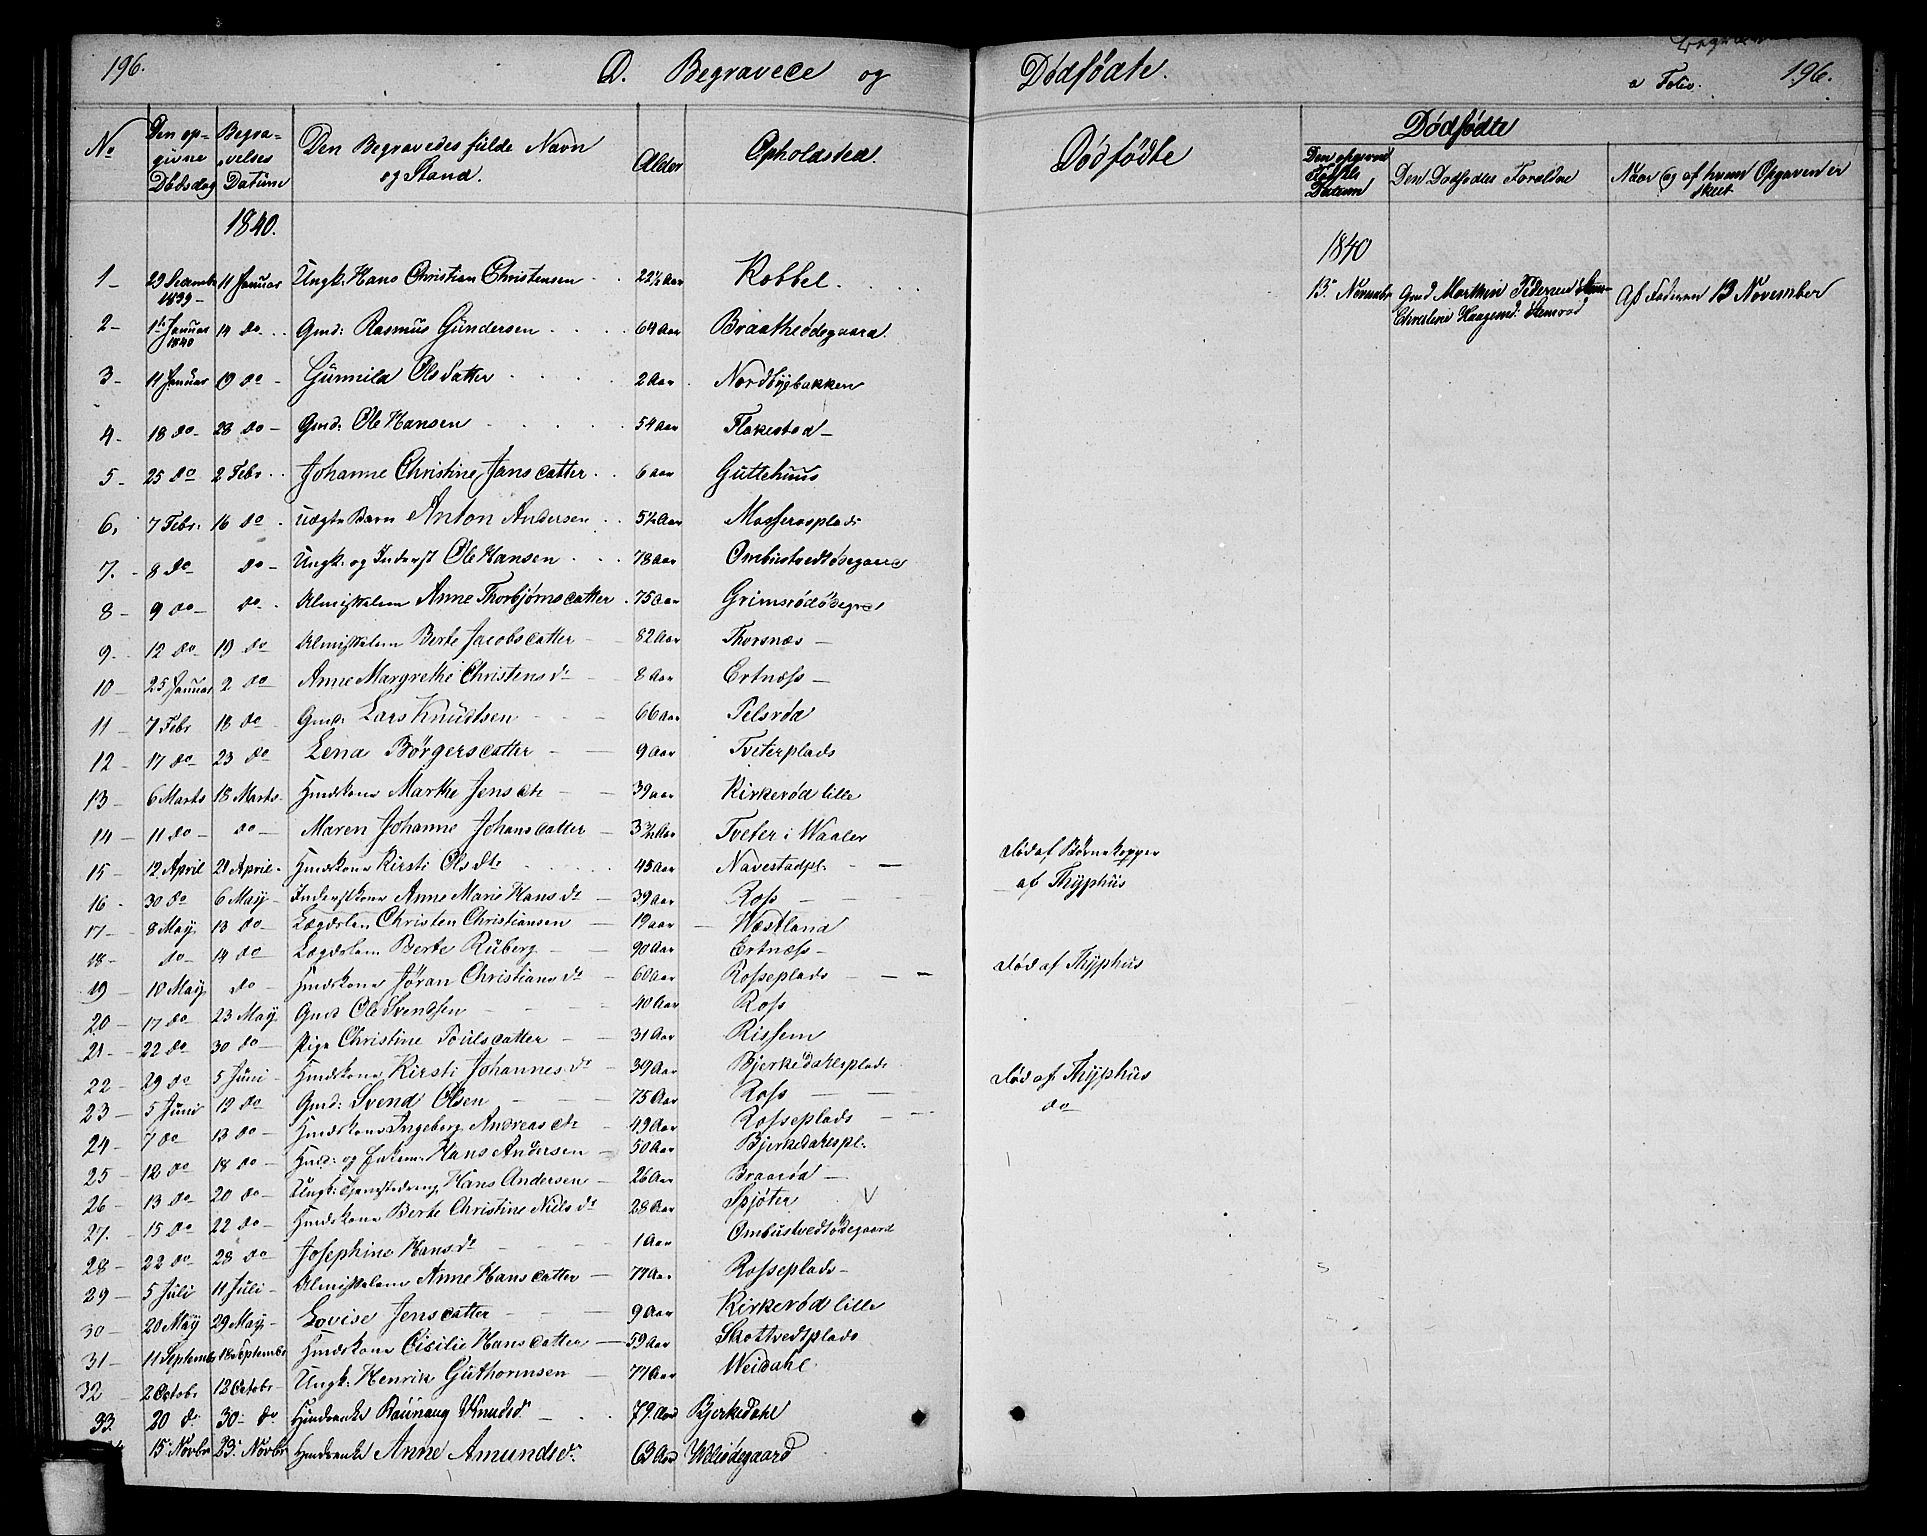 196. D. Begravede og Dødfødte. 196.
a Folio.
No
Den opgivne Dødsdag
Begravelses Datum
Den Begravedes fulde Navn og Stand.
Alder
Opholdsted.
Dødfødte
Dødfødte
Datum
Den Dødfødtes Forældre
Naar og af hvem Opgaven er skeet
1840.
1 - 29 Decembr 1839 - 11 Januar Ungk: Hans Christian Christensen 22½ Aar Kobbel.
2 - 1te Januar 1840 14 do Gmd: Rasmus Gundersen 64 Aar Braatheødegaard.
3 - 11 Januar 19 do - Gunnild Olsdatter 2 Aar Nordbyebakken
4 - 18 do - 28 do - Gmd: Ole Hansen 54 Aar Flakestad -
5 - 25 do 2 Febr Johanne Christine Jansdatter 6 aar Guttehuus
6. 7 Febr. 16 do uægte Barn Anton Andersen 5½ Aar Mosserosplads
7. - 8 do do - Ungk: og Inderst Ole Hansen 78 Aar Ombustvedtødegaard
8 - 9 do - do - Almisselem Anne Thorbjørnsdatter 75 Aar Grimsrødødegrd
9 - 12 do 19 do Almisselem Berte Jacobsdatter 82 Aar Thorsnæs -
10 - 25 Januar 2 do Anne Margrethe Christensdr 8 Aar Ertnæss -
11 - 7 Febr 18 do Gmd: Lars Knudtsen 66 Aar Pelsrød
12 - 17 do 23 do Lena Børgersdatter - 9 Aar Tveterplads
13 - 6 Marts 18 Marts Huuskone Marthe Jensdtr - 39 aar Kirkerød lille
14 - 11 do - do - Maren Johanne Johansdatter - 3½ Aar Tveter i Waaler
15 - 12 April 21 April - Huuskone Kirsti Olsdtr 45 Aar Navestadpl. - - død af Børnekopper
16 - 30 do 6 May - Inderstkone Anne Marie Hansdr - 39 aar Ross - - af Thyphus
17 - 8 May 13 do - Lægdslem Christen Christiansen - 19 aar - Westland
18 - do - 14 do - Lægdslem Berte Ruberg - 90 Aar Ertnæss -
19 - 10 May do - Huuskone Jøran Christiansdr 60 Aar Rosseplads - - død af Thyphus
20 - 17 do 23 May Gmd Ole Svendsen 40 Aar Ross
21 - 22 do 30 do - Pige Christine Poulsdatter - 31 Aar Rissem
22 - 29 do 5 Juni - Huuskone Kirsti Johannesdr 39 Aar Bjerkedahlsplads
23 - 5 Juni 12 do Gmd: Svend Olsen 75 Aar Ross - - død af Thyphus
24 - 7 do 13 do - Huuskone Ingeborg Andreasdtr - 49 Aar Rosseplads - - do
25 - 12 do 18 do - Huusmd: og Hans Andersen - 50 Aar Bjerkedahlspl.
26 - 13 do 20 do - Ungk: Tjenestedreng Hans Andersen - 26 Aar Braarød -
27. - 15 do 22 do - Huuskone Berte Christine Nielsdr 28 Aar Spjøter V
28 - 22 do 28 do Josephine Hansdr 1 Aar Ombustvedtødegaard
29 - 5 Juli 11 Juli - Almisselem Anne Hansdatter - 77 Aar Rosseplads -
30 - 20 May 29 May - Lovise Jensdatter 9 Aar Kirkerød lille
31 - 11 Septembr 18 Septembr Huuskone Cicilie Hansdatter - 59 Aar Skottvedtplads
32 - 2 Octobr 12 Octobr - Ungk: Henrik Guthormsen - 77 Aar Weidahl
33. 20 do 30 - do Huusenke Raunaug Knudsd. 79 Aar Bjerkedahl
15 Novbr 23. Novbr Huusenke Anne Amundsdr 63 Aar Weliødegaard
1840
13. Novembr Gmd Morthen Pedersen
Christine Haagensd: Stensrød Af Faderen 13 November